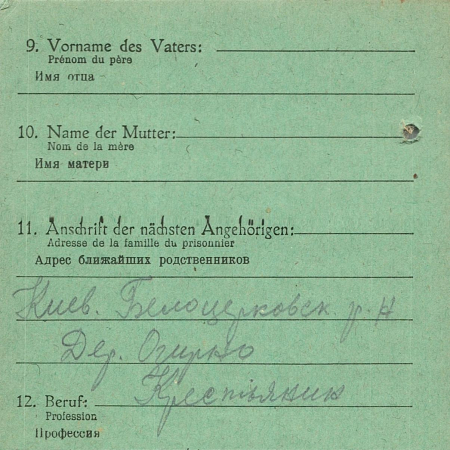 9. Vorname des Vaters:
Prénom du père
Имя отца
10. Name der Mutter:
Nom de la mère
Имя матери
11. Anschrift der nächsten Angehörigen:
Adresse de la famille du prisonnier
Адрес ближайших родственников
Киев. Белоцерковск р-н
Дер.
Крестьянин
12. Beruf:
Profession
Профессия